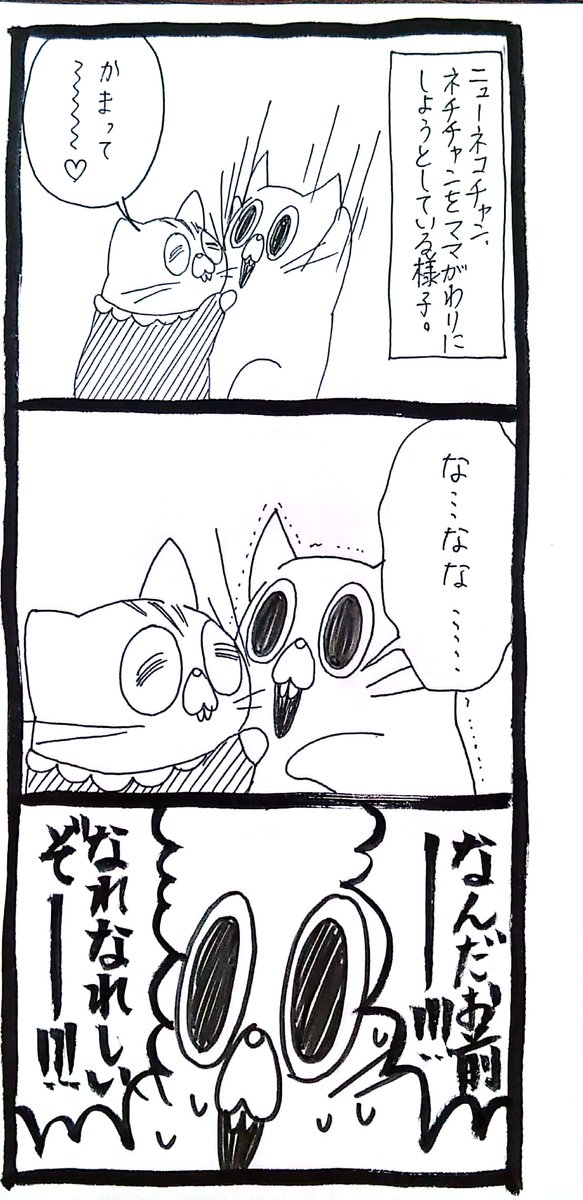 ニューネコチャン、
ネチチャンをママがわりに
しようとしている様子。
かまって
〜〜〜〜♡
な…なな……
なんだお前
ーー!!!
なれなれしい
ぞーー!!!